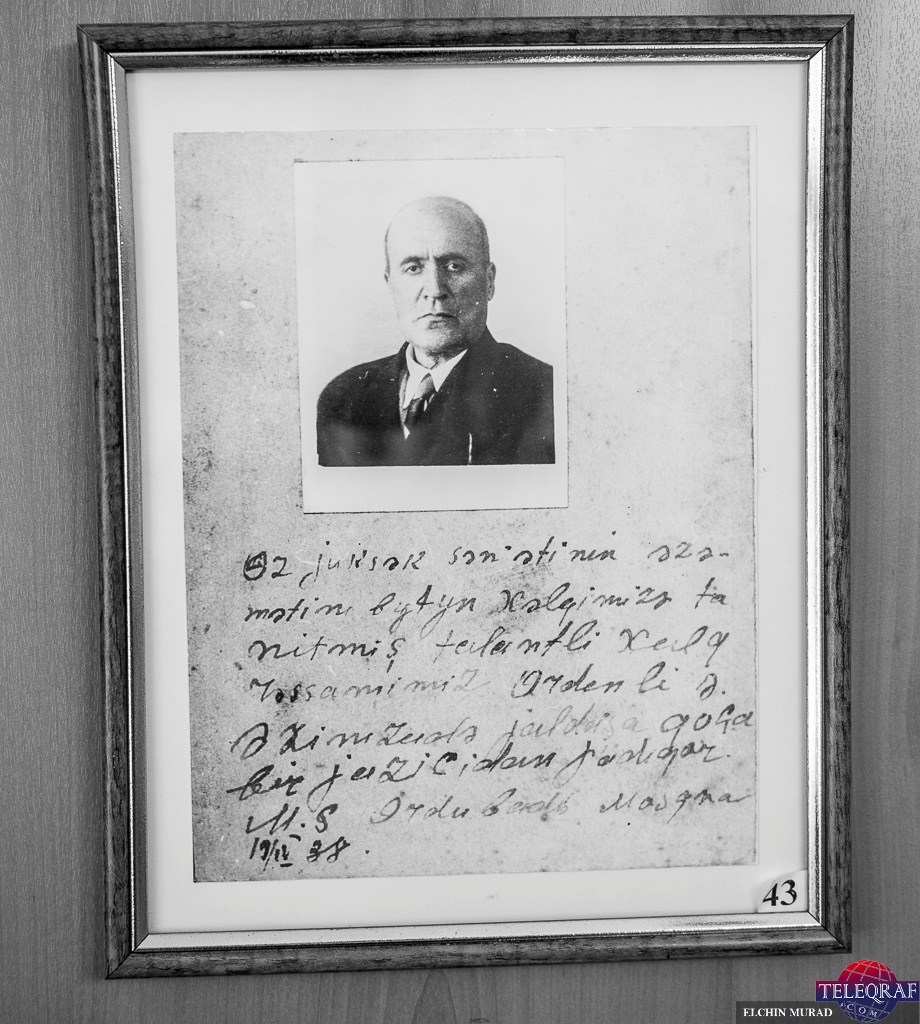 Öz jyksək sən'ətinin əzə-
mətini bytyn xalqimizə ta
nitmiş talantli xalq
rəssamimiz Ordenli Ə.
Əzimzadə joldaşa qoça
bir jaziçidan jadigar.
M.S Ordubadi Mosqva
19/IV 38.
43
TELEQRAF
.COM
ELCHIN MURAD